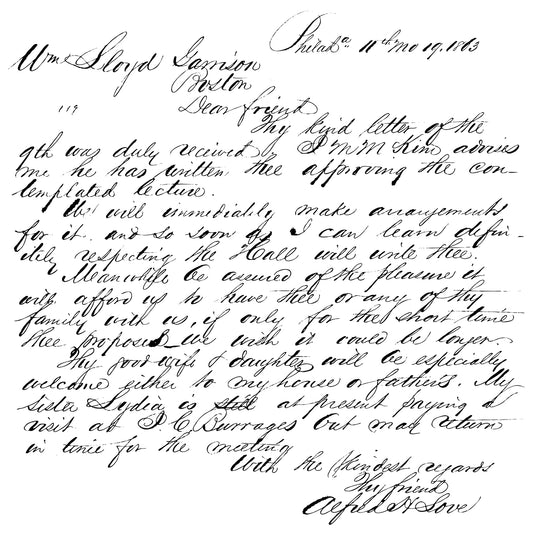 Philada. 11th Mo 19. 1863
Wm Lloyd Garrison
Boston
Dear friend
Thy kind letter of the
9th was duly received. J M McKim advises
me he has written thee approving the con-
templated lecture.
We will immediately make arrangements
for it and so soon as I can learn defin-
itely respecting the Hall will write thee.
Meanwhile be assured of the pleasure it
will afford us to have thee or any of thy
family with us, if only for the short time
thee proposes we wish it could be longer.
Thy good wife & daughter will be especially
welcome either to my house or fathers. My
sister Lydia is still at present paying a
visit at J. C Burrages but may return
in time for the meeting
With the kindest regards
Thy friend
Alfred H Love